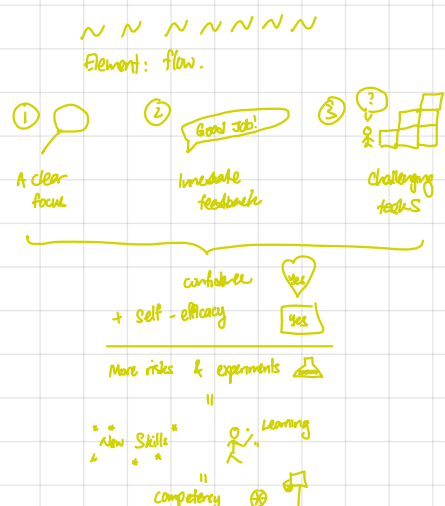 Element: flow.
1 2 3
Good Job! ?
A clear focus
Immediate feedback
Challenging tasks
confidence Yes
+ Self-efficacy Yes
More risks & experiments
=
New Skills Learning
=
competency